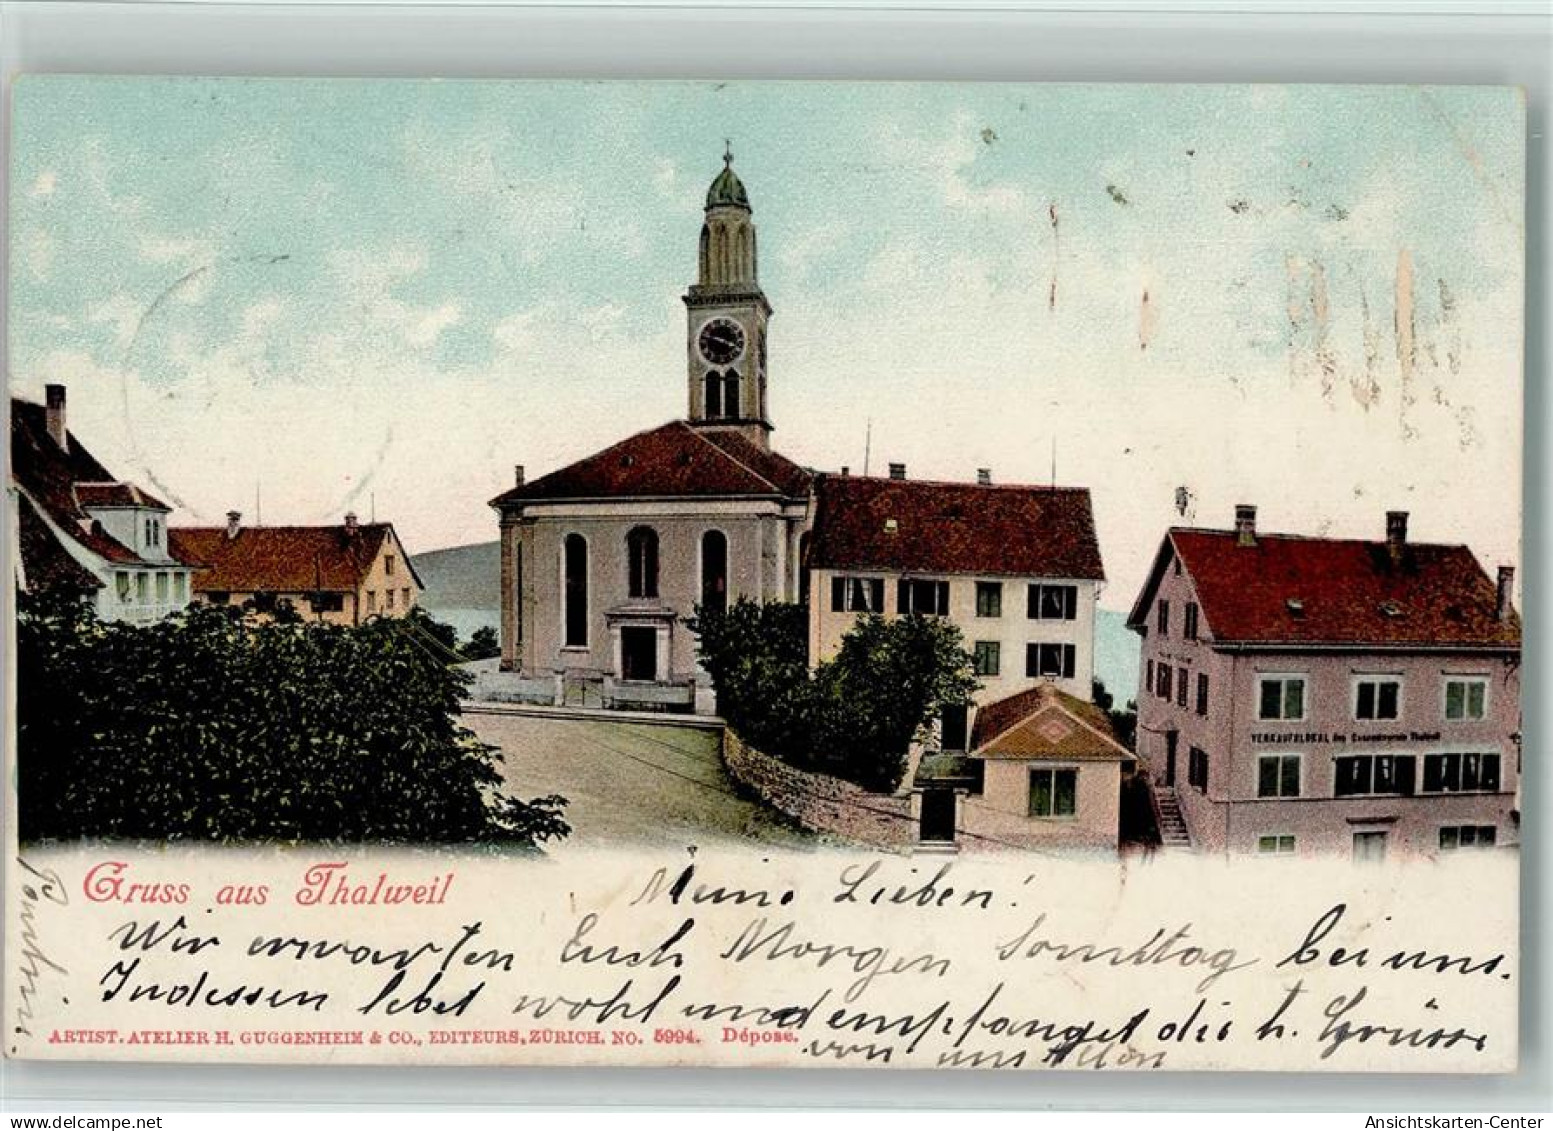 VERKAUFSLOKAL des Consumverein Thalweil
Gruss aus Thalweil
Meine Lieben!
Wir erwarten Euch Morgen Sonntag bei uns.
Indessen lebet wohl und empfanget die h. Grüsse
von uns Allen
ARTIST. ATELIER H. GUGGENHEIM & CO., EDITEURS, ZÜRICH. NO. 5994. Déposé.
Ansichtskarten-Center